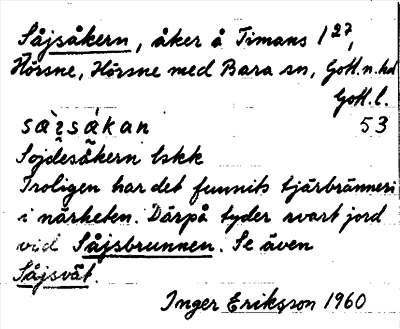 Såjsåkern, åker å Timans 1²⁷,
Hörsne, Hörsne med Bara sn, Gotl. n. hd
Gotl. l.
53
Söjdesåkern lskk
Troligen har det funnits tjärbränneri
i närheten. Därpå tyder svart jord
vid Såjsbrunnen. Se även
Såjsvät.
Inger Eriksson 1960